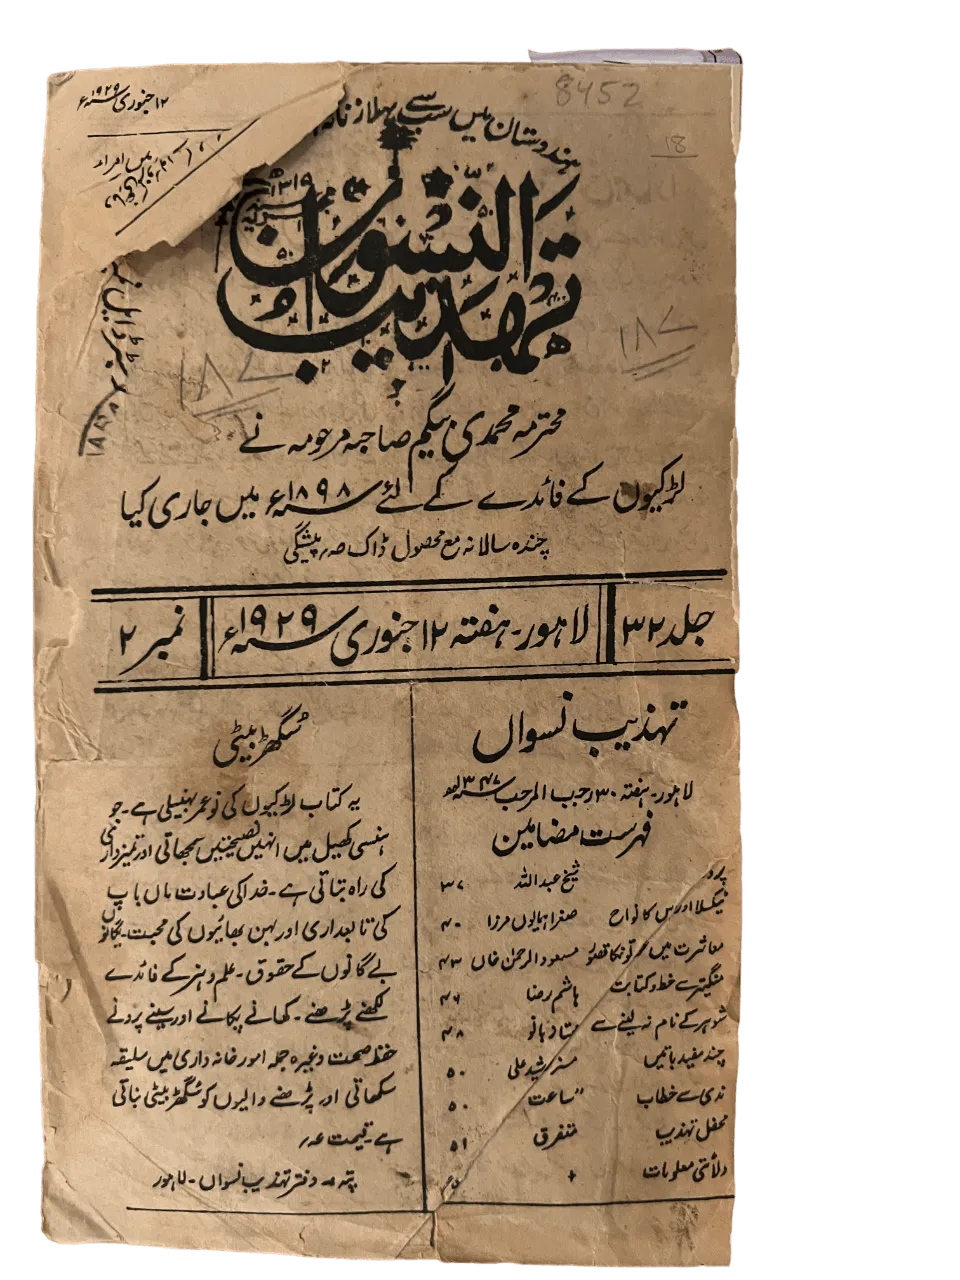 ۱۲ جنوری ۱۹۲۹ء
8452
18
ہندوستان میں سب سے پہلا زنانہ
۱۳۱۵
تہذیب النسواں
۱۸۷
۱۸۷
محترمہ محمدی بیگم صاحبہ مرحومہ نے
لڑکیوں کے فائدے کے لئے ۱۸۹۸ء میں جاری کیا
چندہ سالانہ مع محصول ڈاک صہ پیشگی
جلد ۳۲
لاہور۔ ہفتہ ۱۲ جنوری ۱۹۲۹ء
نمبر ۲
تہذیب نسواں
لاہور۔ ہفتہ ۳۰ رجب المرجب ۱۳۴۷ھ
فہرست مضامین
پردہ شیخ عبداللہ ۳۷
ٹیکسلا اور اس کا نواح صغرا ہمایوں مرزا ۴۰
معاشرت میں مسعود الرحمٰن خاں ۴۳
منگیتر سے خط و کتابت ہاشم رضا ۴۶
شوہر کے نام نہ لینے سے بانو ۴۸
چند مفید باتیں مسز رشید علی ۵۰
ندی سے خطاب ساعت ۵۰
محفل تہذیب متفرق ۵۱
ولائتی معلومات
سُگھڑ بیٹی
یہ کتاب لڑکیوں کی نو عمر سہیلی ہے۔ جو
ہنسی کھیل میں انہیں نصیحتیں سمجھاتی اور تمیزداری
کی راہ بتاتی ہے۔ خدا کی عبادت ماں باپ
کی تابعداری اور بہن بھائیوں کی محبت۔ یگانوں
بے گانوں کے حقوق۔ علم و ہنر کے فائدے
لکھنے پڑھنے۔ کھانے پکانے اور سینے پرونے
حفظ صحت وغیرہ جملہ امور خانہ داری میں سلیقہ
سکھاتی اور پڑھنے والیوں کو سُگھڑ بیٹی بناتی
ہے۔ قیمت عہ
پتہ دفتر تہذیب نسواں۔ لاہور